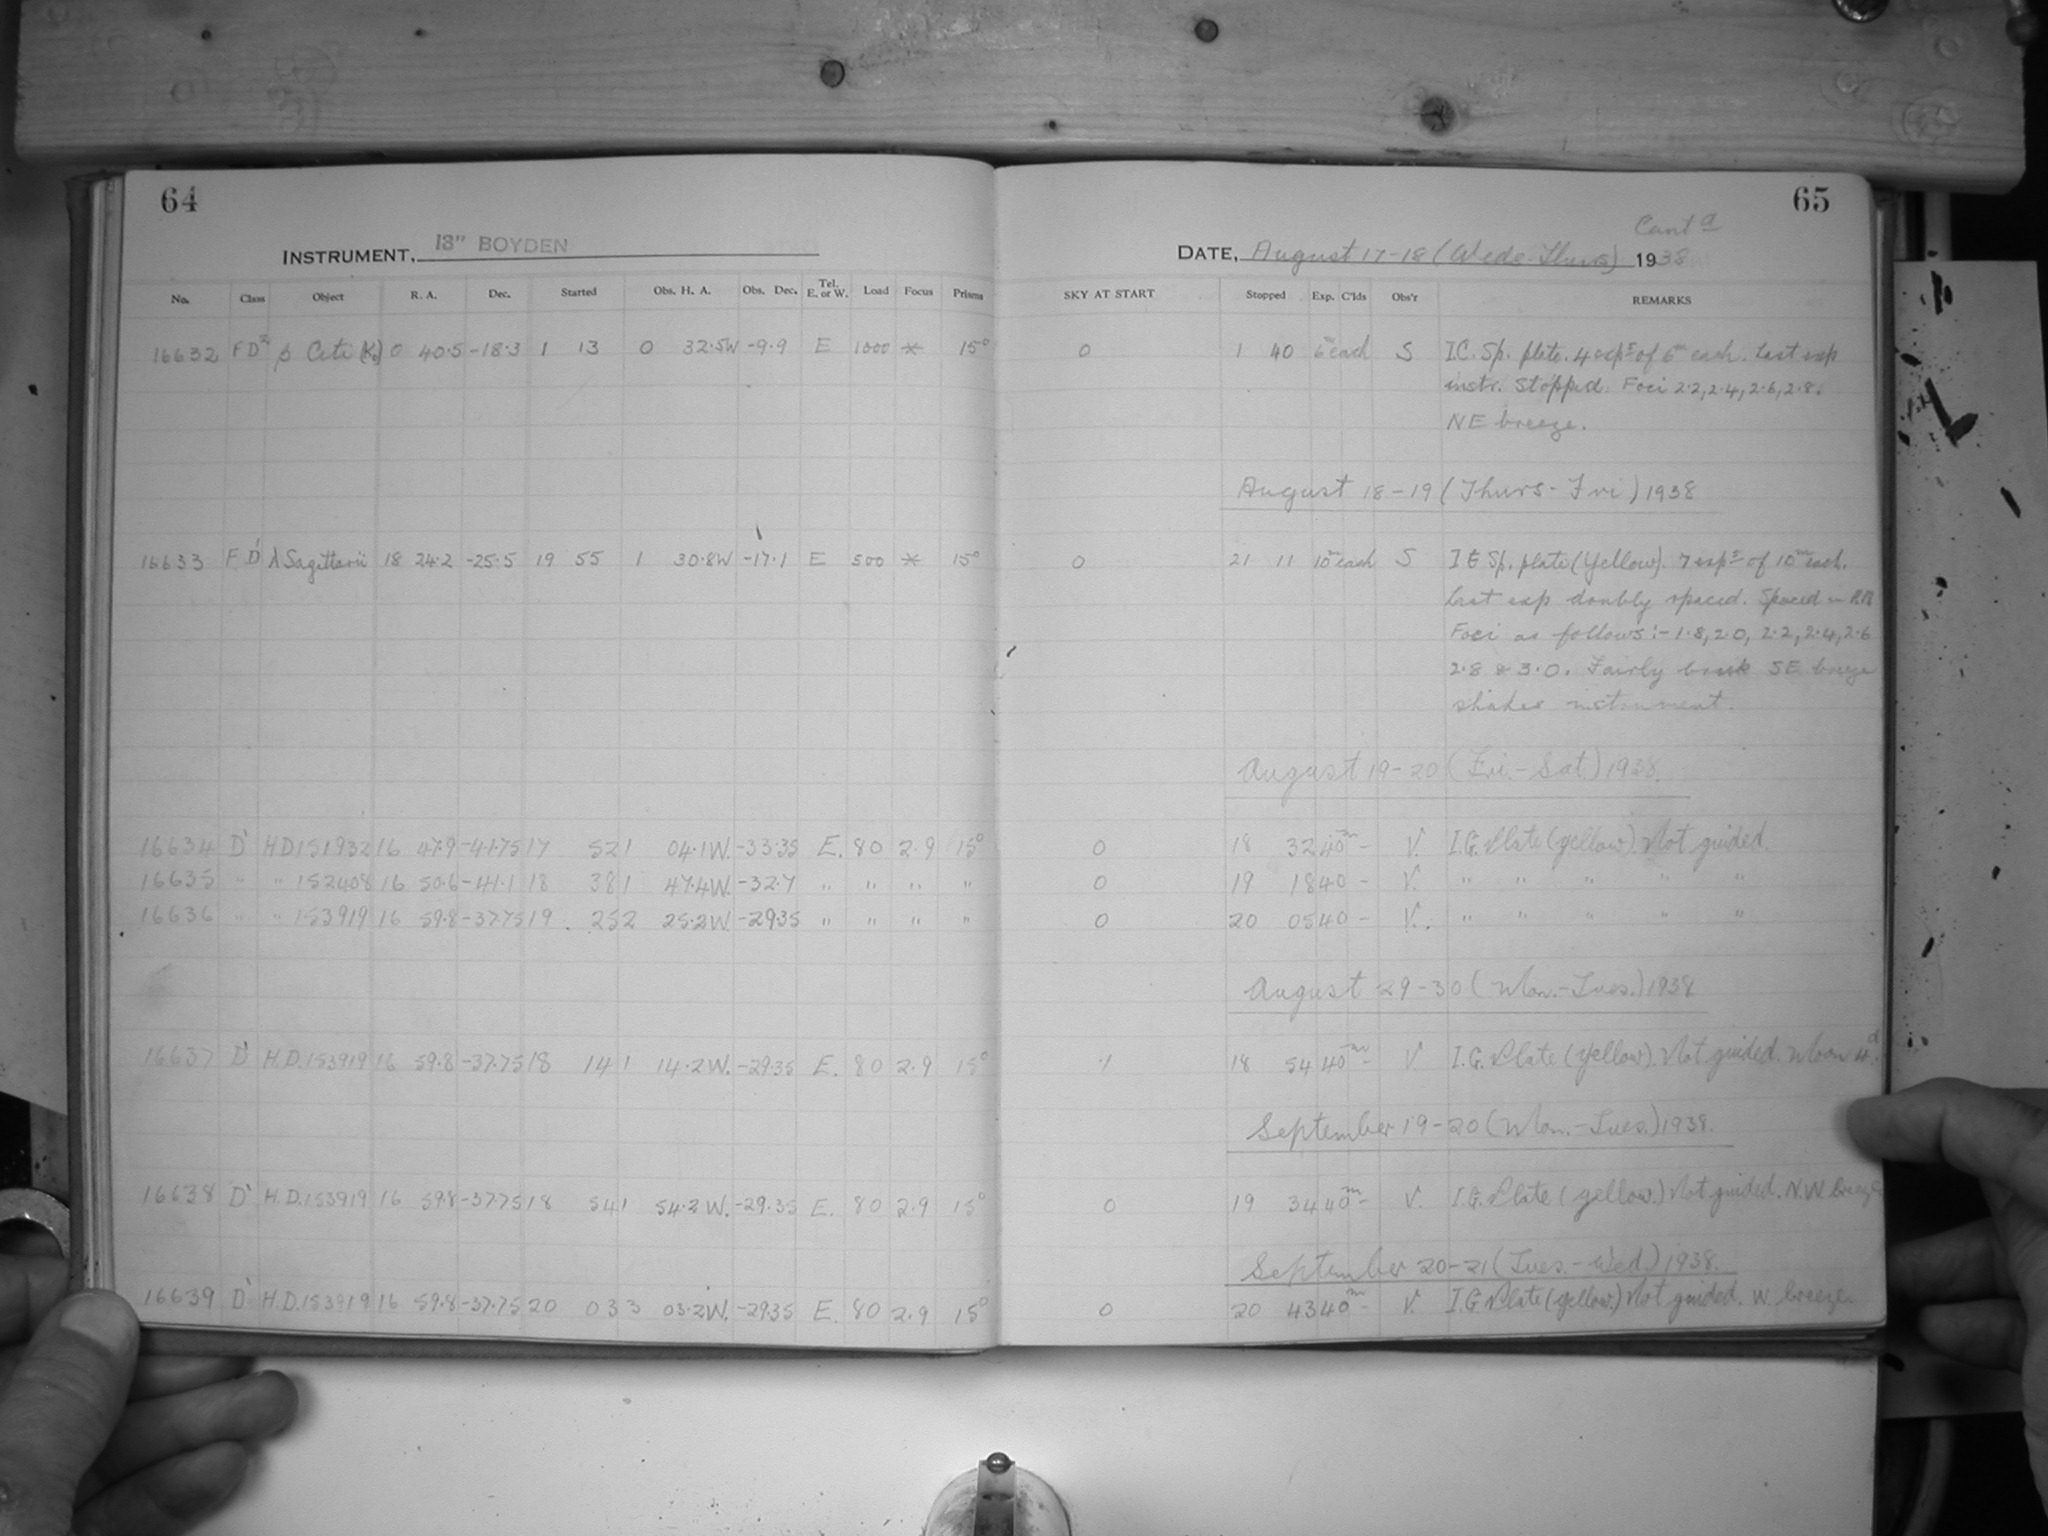 64
INSTRUMENT, 13" BOYDEN
No. Class Object R. A. Dec. Started Obs. H. A. Obs. Dec. Tel. E. or W. Load Focus Prisms
16632 F D² β Ceti (K0) 0 40.5 -18.3 1 13 0 32.5W -9.9 E 1000 * 15°
16633 F D' λ Sagittarii 18 24.2 -25.5 19 55 1 30.8W -17.1 E 500 * 15°
16634 D' HD151932 16 47.9 -41.75 17 52 1 04.1W. -33.35 E. 80 2.9 15°
16635 " " 152408 16 50.6 -41.1 18 38 1 47.4W. -32.7 " " " "
16636 " " 153919 16 59.8 -37.75 19 25 2 25.2W -29.35 " " " "
16637 D' H.D.153919 16 59.8 -37.75 18 14 1 14.2W. -29.35 E. 80 2.9 15°
16638 D' H.D.153919 16 59.8 -37.75 18 54 1 54.2W. -29.35 E. 80 2.9 15°
16639 D' H.D.153919 16 59.8 -37.75 20 03 3 03.2W -29.35 E. 80 2.9 15°
65
Cont d
DATE, August 17-18 (Weds-Thurs) 1938
SKY AT START Stopped Exp. C'lds Obs'r REMARKS
0 1 40 6m each S I.C. Sp. plate. 4 exps of 6m each. Last exp
instr. stopped. Foci 2.2, 2.4, 2.6, 2.8.
NE breeze.
August 18-19 (Thurs-Fri) 1938
0 21 11 10m each S I G Sp. plate (Yellow). 7 exps of 10m each.
Last exp doubly spaced. Spaced in RA
Foci as follows:- 1.8, 2.0, 2.2, 2.4, 2.6
2.8 & 3.0. Fairly brisk SE breeze
shakes instrument.
August 19-20 (Fri.-Sat.) 1938.
0 18 32 40m - V. I.G. Plate (yellow). Not guided.
0 19 18 40 - V. " " " " "
0 20 05 40 - V. " " " " "
August 29-30 (Mon.-Tues.) 1938
18 54 40m - V. I.G. Plate (yellow). Not guided. Moon 4d.
September 19-20 (Mon.-Tues.) 1938.
0 19 34 40m - V. I.G. Plate (yellow.) Not guided. N.W. breeze
September 20-21 (Tues.-Wed.) 1938.
0 20 43 40m - V. I.G. Plate (yellow.) Not guided. W. breeze.